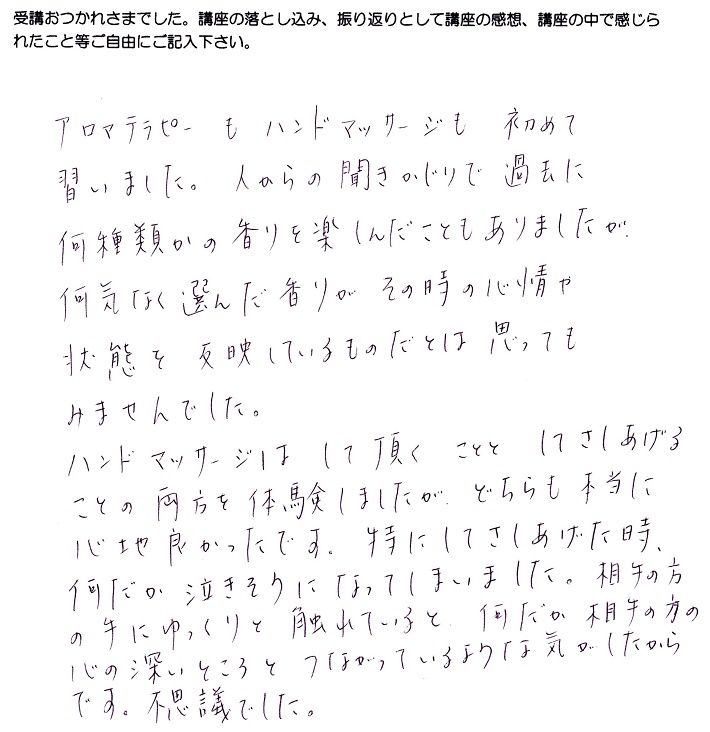 受講おつかれさまでした。講座の落とし込み、振り返りとして講座の感想、講座の中で感じら
れたこと等ご自由にご記入下さい。
アロマテラピーも ハンドマッサージも 初めて
習いました。人からの聞きかじりで過去に
何種類かの香りを楽しんだこともありましたが、
何気なく選んだ香りが その時の心情や
状態を反映しているものだとは思っても
みませんでした。
ハンドマッサージは して頂くことと してさしあげる
ことの両方を体験しましたが、どちらも本当に
心地良かったです。特にしてさしあげた時、
何だか泣きそうになってしまいました。相手の方
の手にゆっくりと触れていると、何だか相手の方の
心の深いところとつながっているような気がしたから
です。不思議でした。